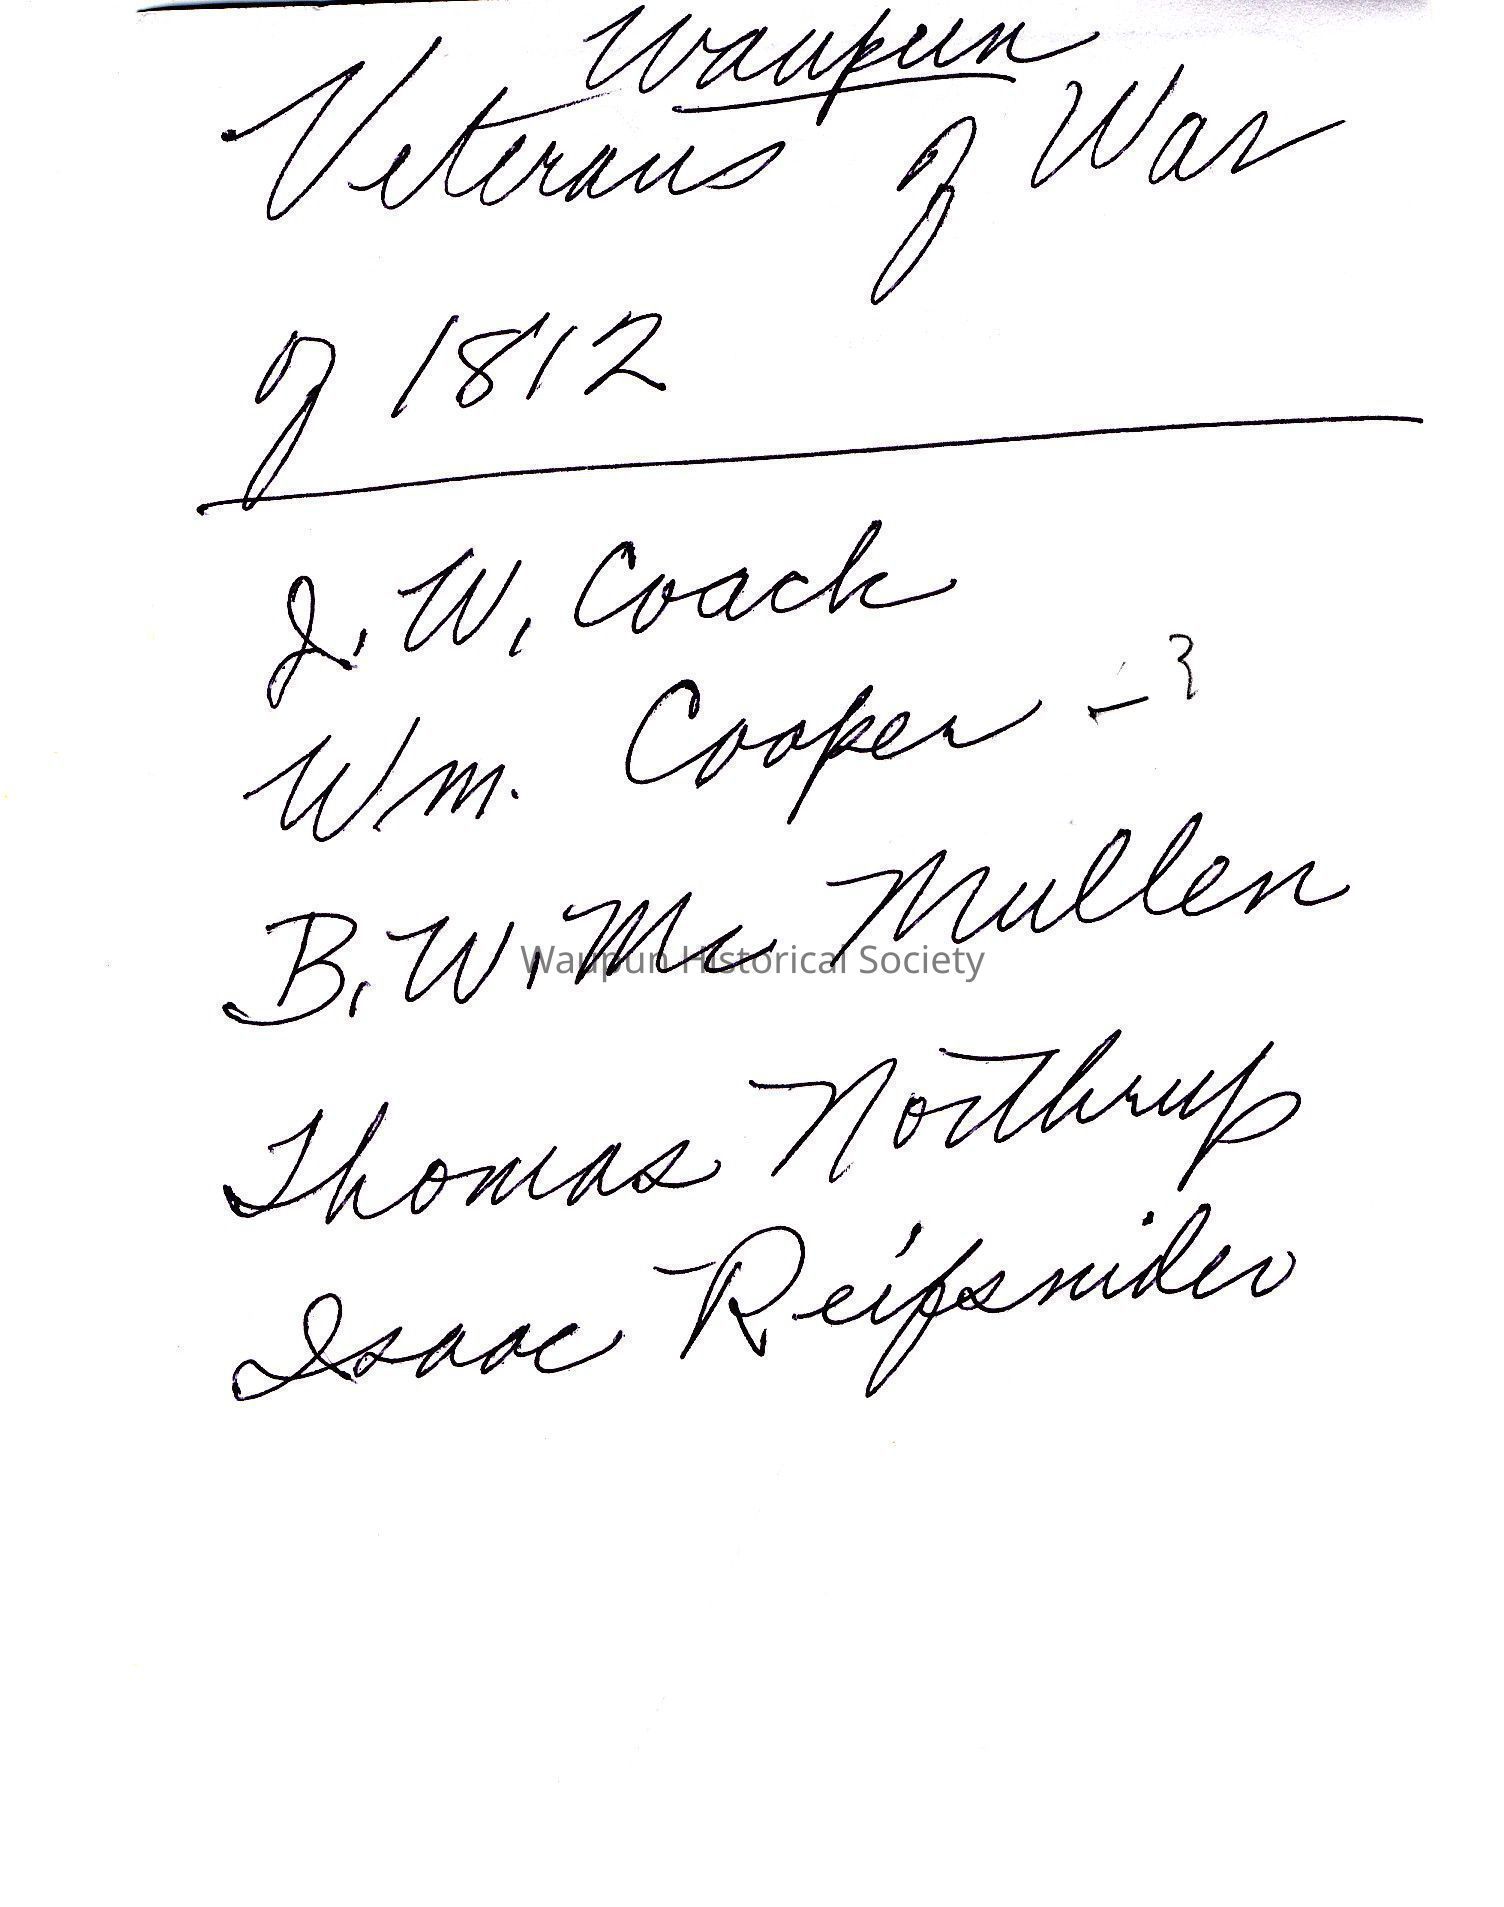 Waupun
Veterans of War
of 1812
J. W. Coack
Wm. Cooper - ?
B. W. Mc Mullen
Waupun Historical Society
Thomas Northrup
Isaac Reifsnider